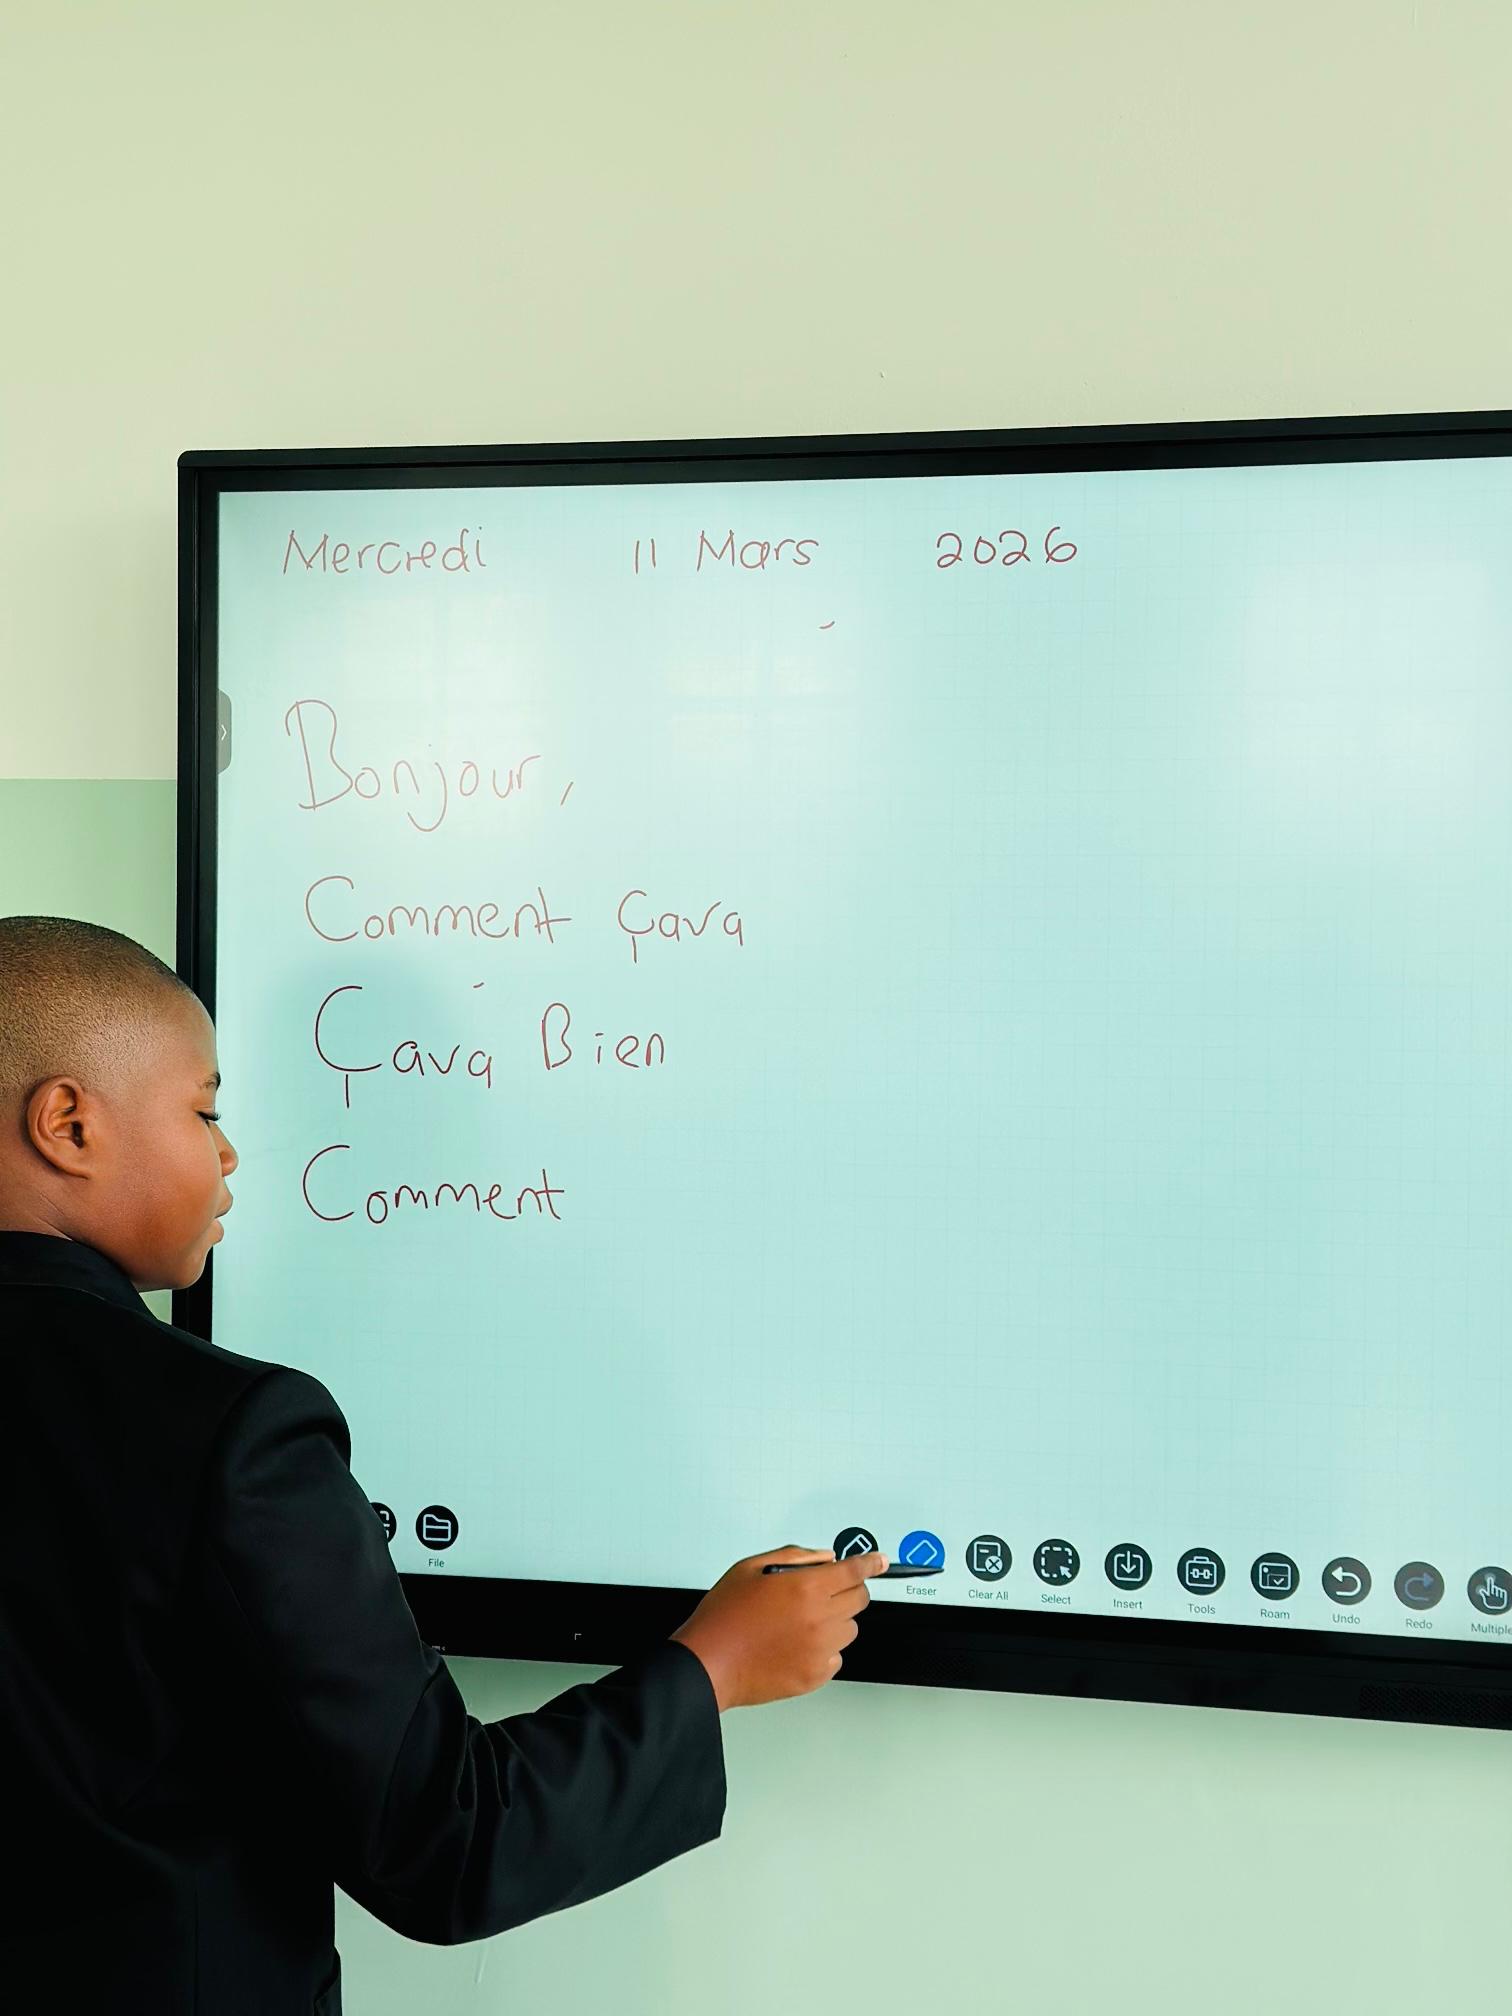 Mercredi 11 Mars 2026
Bonjour,
Comment Çava
Çava Bien
Comment
File Eraser Clear All Select Insert Tools Roam Undo Redo Multiple